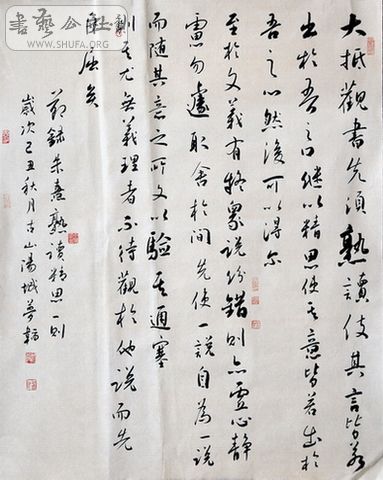 書藝公社
WWW.SHUFA.ORG
大抵觀書先須熟讀使其言皆若
出於吾之口繼以精思使其意皆若出於
吾之心然後可以得尔
至於文義有疑眾說紛錯則亦虛心靜
慮勿遽取舍於間先使一說自為一說
而随其意之所之以驗其通塞
則其尤無義理者不待觀於他說而先
自屈矣
節錄朱熹熟讀精思一則
歲次己丑秋月古山陽城夢